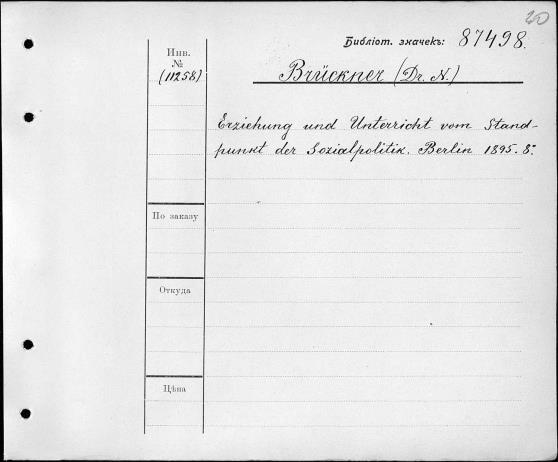 20
Библіот. значекъ: 87498.
Инв.
№
(11258)
Brückner (Dr. N.)
Erziehung und Unterricht vom Stand-
punkt der Sozialpolitik. Berlin 1895. 8º
По заказу
Откуда
Цѣна